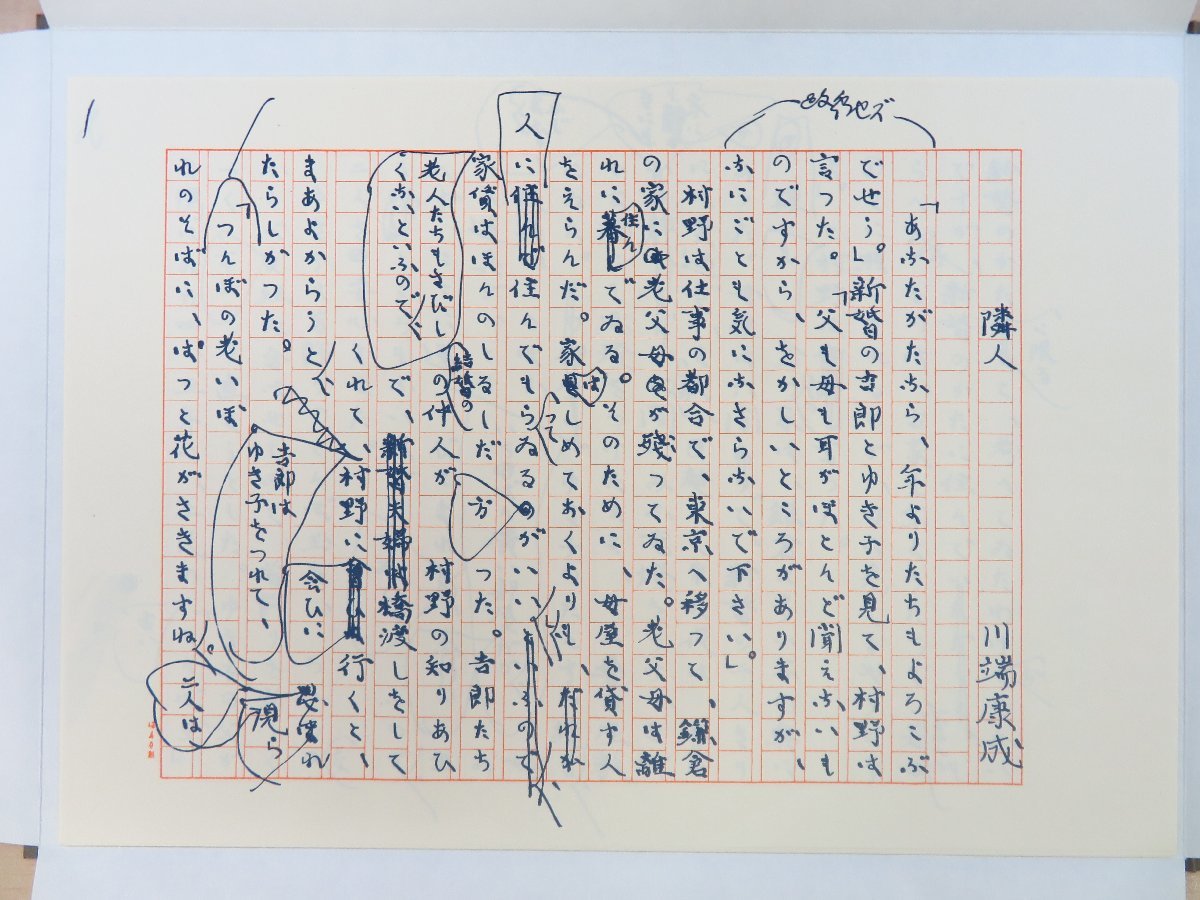 隣人
川端康成
改行セズ
「あなたがたなら、年よりたちもよろこぶ
でせう。」新婚の吉郎とゆき子を見て、村野は
言つた。「父も母も耳がほとんど聞えないも
のですから、をかしいところがありますが、
なにごとも気になさらないで下さい。」
村野は仕事の都合で、東京へ移つて、鎌倉
の家に老父母が残つてゐた。老父母は離
れに住んでゐる。そのために、母屋を貸す人
をえらんだ。家はしめておくよりも、
人に住んでもらつてゐるのがいい
老人たちもさびしくないといふので、
家賃はほんのしるしだ
方
つた。吉郎たち
結婚の
の仲人が
村野の知りあひ
で、
橋渡しをして
くれて、村野に
会ひに
行くと、
吉郎は
ゆき子をつれて、
まあよからうと、
二人は
現ら
れ
たらしかつた。
「つんぼの老いぼ
れのそばに、ぱつと花がさきますね。
1